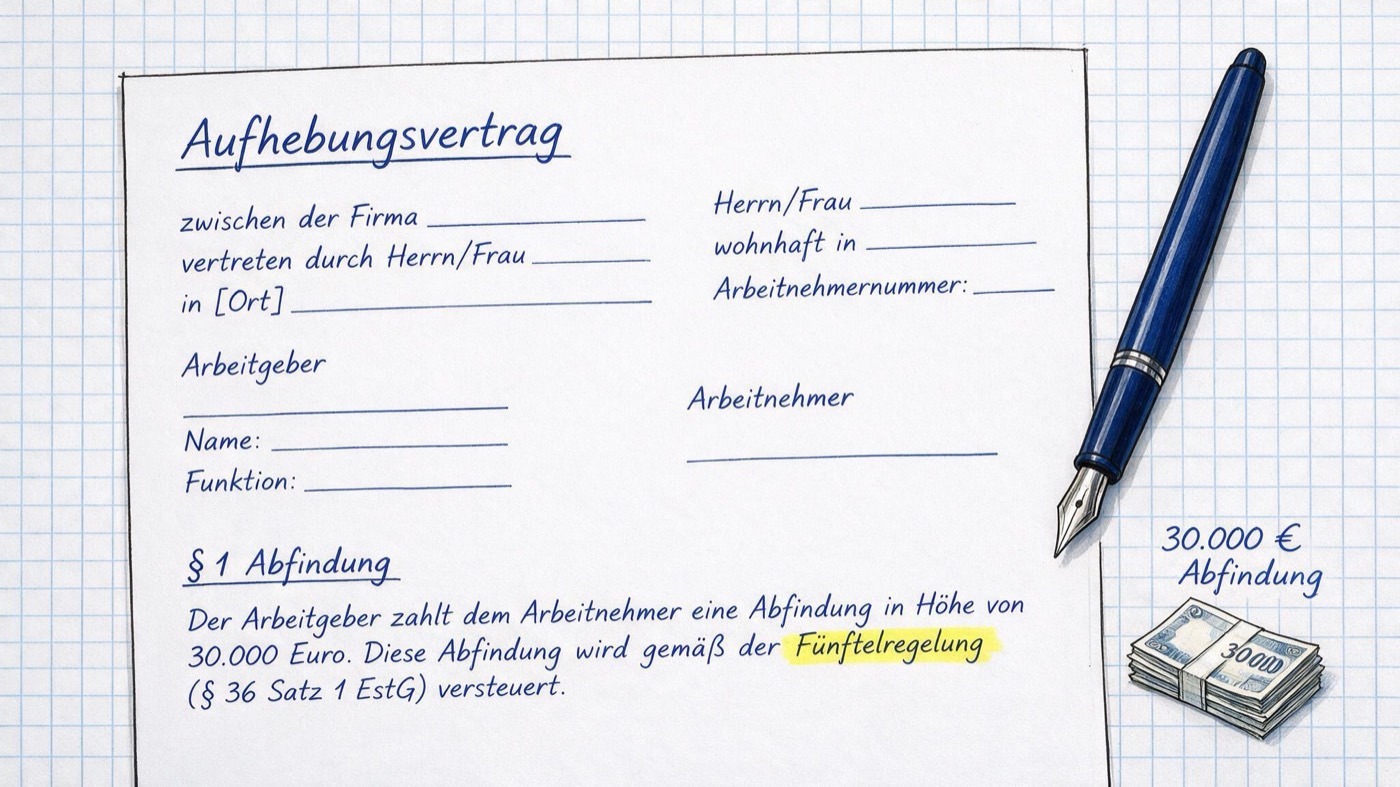 Aufhebungsvertrag
zwischen der Firma
vertreten durch Herrn/Frau
in [Ort]
Herrn/Frau
wohnhaft in
Arbeitnehmernummer:
Arbeitgeber
Name:
Funktion:
Arbeitnehmer
§ 1 Abfindung
Der Arbeitgeber zahlt dem Arbeitnehmer eine Abfindung in Höhe von
30.000 Euro. Diese Abfindung wird gemäß der Fünftelregelung
(§ 36 Satz 1 EstG) versteuert.
30.000 €
Abfindung